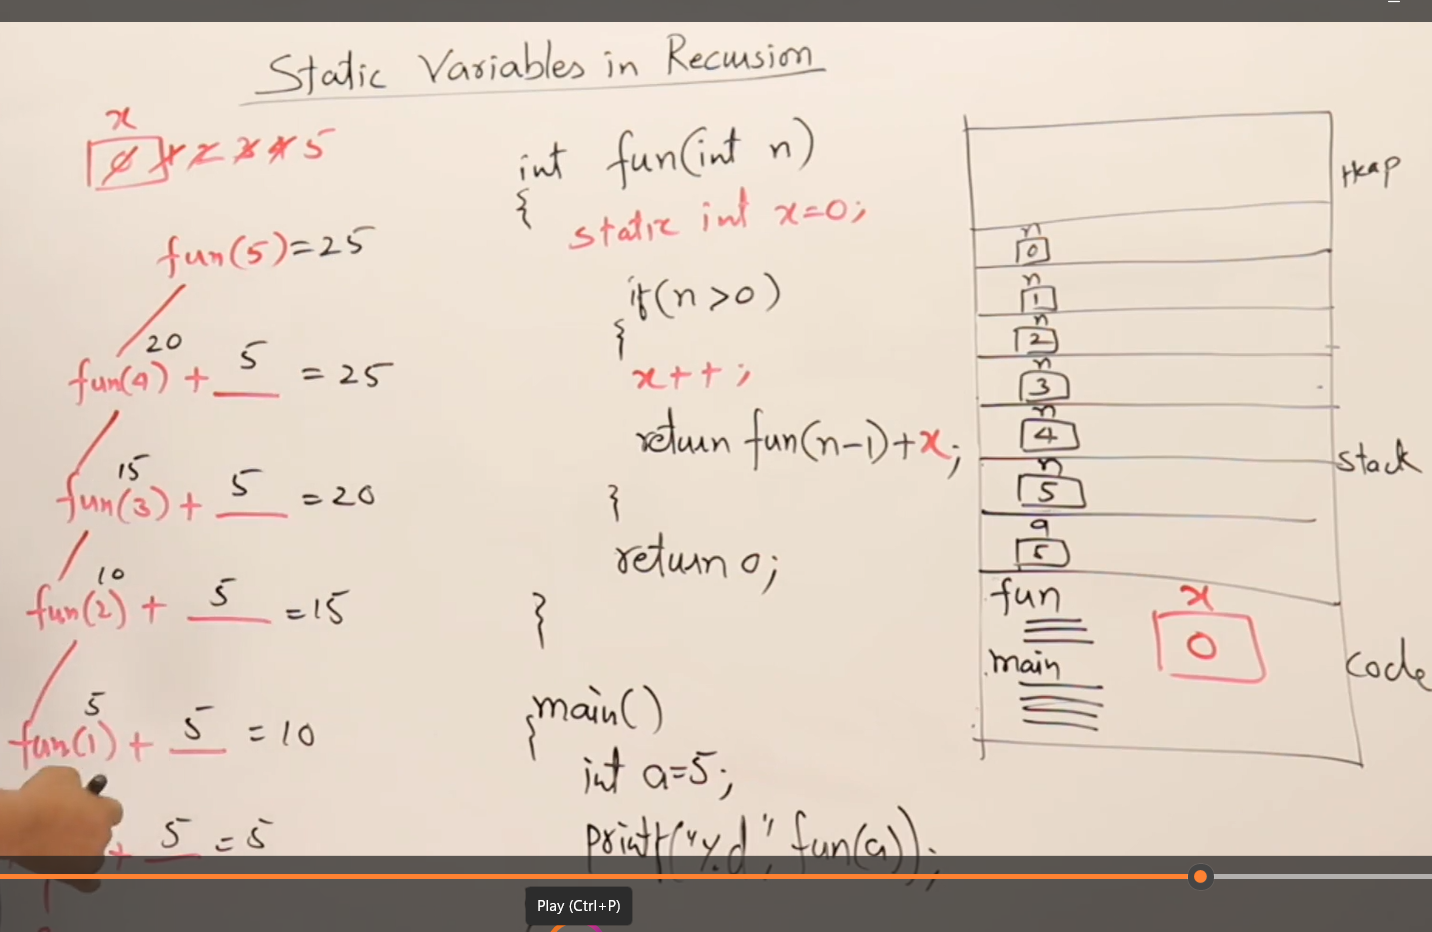 Static Variables in Recursion
x
0 1 2 3 4 5
fun(5)=25
20
fun(4) + 5 = 25
15
fun(3) + 5 = 20
10
fun(2) + 5 = 15
5
fun(1) + 5 = 10
+ 5 = 5
int fun(int n)
{
static int x=0;
if(n>0)
{
x++;
return fun(n-1)+x;
}
return 0;
}
main()
{
int a=5;
printf("%d", fun(a));
Heap
n
0
n
1
n
2
n
3
n
4
n
5
a
5
stack
fun
main
x
0
code
Play (Ctrl+P)